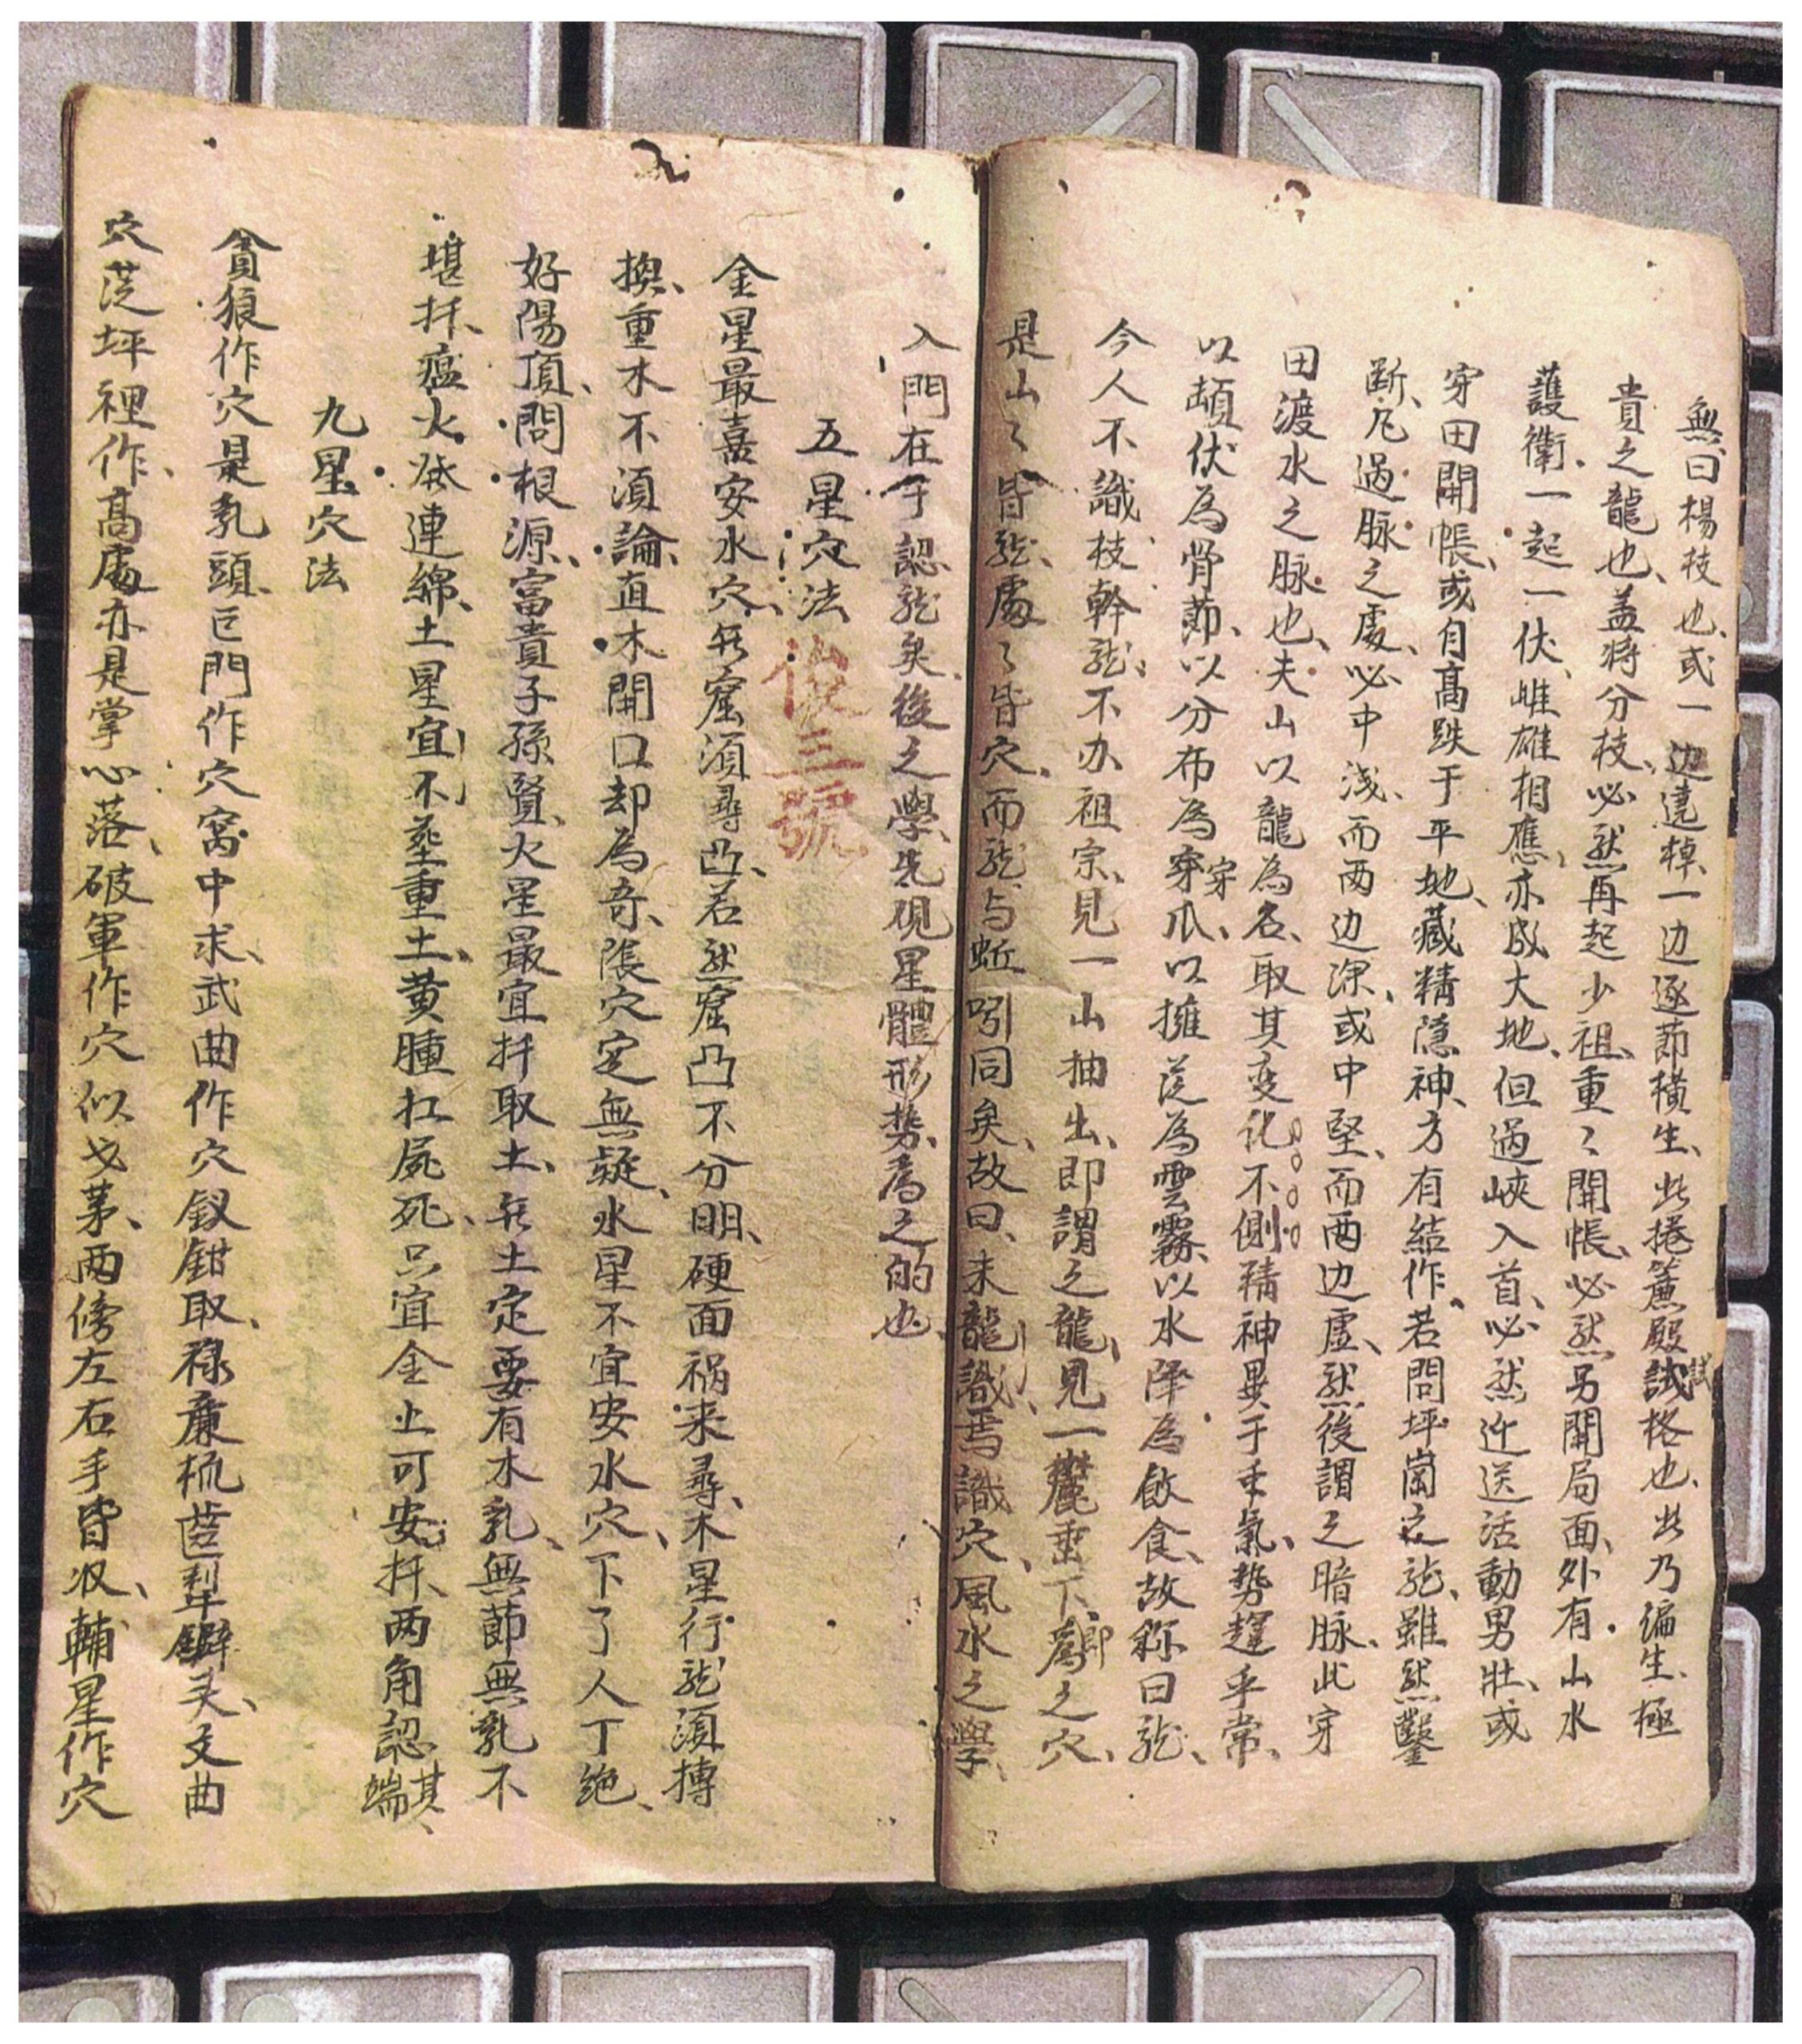 無曰楊枝也、或一边遶棹、一边逐節橫生、此捲簾殿試試格也、此乃偏生極
貴之龍也、盖将分枝、必然再起少祖、重々開帳、必然另開局面、外有山水
護衛、一起一伏、雌雄相應、亦成大地、但過峽入首、必然迎送活動男壯、或
穿田開帳、或自高跌于平地、藏精隐神、方有結作、若問坪崗之龙、雖然鑿
断、凢過脉之處、必中浅、而两边深、或中堅、而两边虚、然後謂之暗脉、此穿
田渡水之脉也、夫山以龍為名、取其变化不側、精神異于束氣、势趕乎常、
以頓伏為骨節、以分布為穿穿爪、以擁茳為雲霧、以水降為飲食、故称曰龙、
今人不識枝幹龙、不办祖宗、見一山抽出、即謂之龍、見一麓垂下、即為之穴、
是山々皆龙、處々皆穴、而龙与蚯蚓同矣、故曰、未龍識、焉識穴、風水之學、
入門在于認龙矣、後之學、先观星體形势、為之的也、
五星穴法
後三號
金星最喜安水穴、无窟須尋凸、若然窟凸不分明、硬面祸来尋、木星行龙須摶
換、重木不須論、直木開口却為奇、張穴定無疑、水星不宜安水穴、下了人丁绝、
好陽頂、問根源、富貴子孫賢、火星最宜扦取土、无土定要有木乳、無節無乳不
堪扦、瘟火癸連綿、土星宜不塟重土、黄腫扛屍死、只宜金止可安扦、两角認其端、
九星穴法
貪狼作穴是乳頭、巨門作穴窩中求、武曲作穴釵鉗取、禄廉梳齒犁鐴头、文曲
穴茳坪裡作、高處亦是掌心落、破軍作穴似戈茅、两傍左右手皆收、輔星作穴